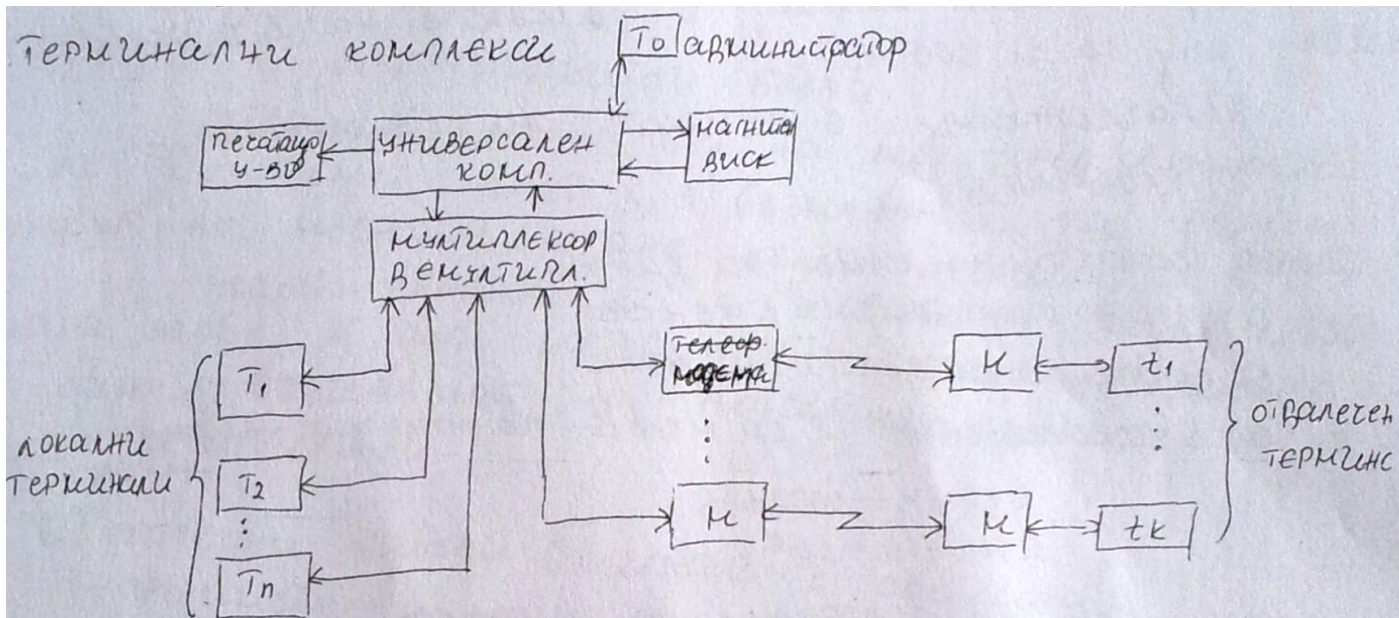 ТЕРМИНАЛНИ КОМПЛЕКСИ
T0 администратор
печатащо
у-во
УНИВЕРСАЛЕН
КОМП.
МАГНИТЕН
ДИСК
МУЛТИПЛЕКСОР
ДЕМУЛТИПЛ.
T1
T2
Tn
ЛОКАЛНИ
ТЕРМИНАЛИ
телеф.
модеми
M
M
M
t1
tk
ОТДАЛЕЧЕН
ТЕРМИНС